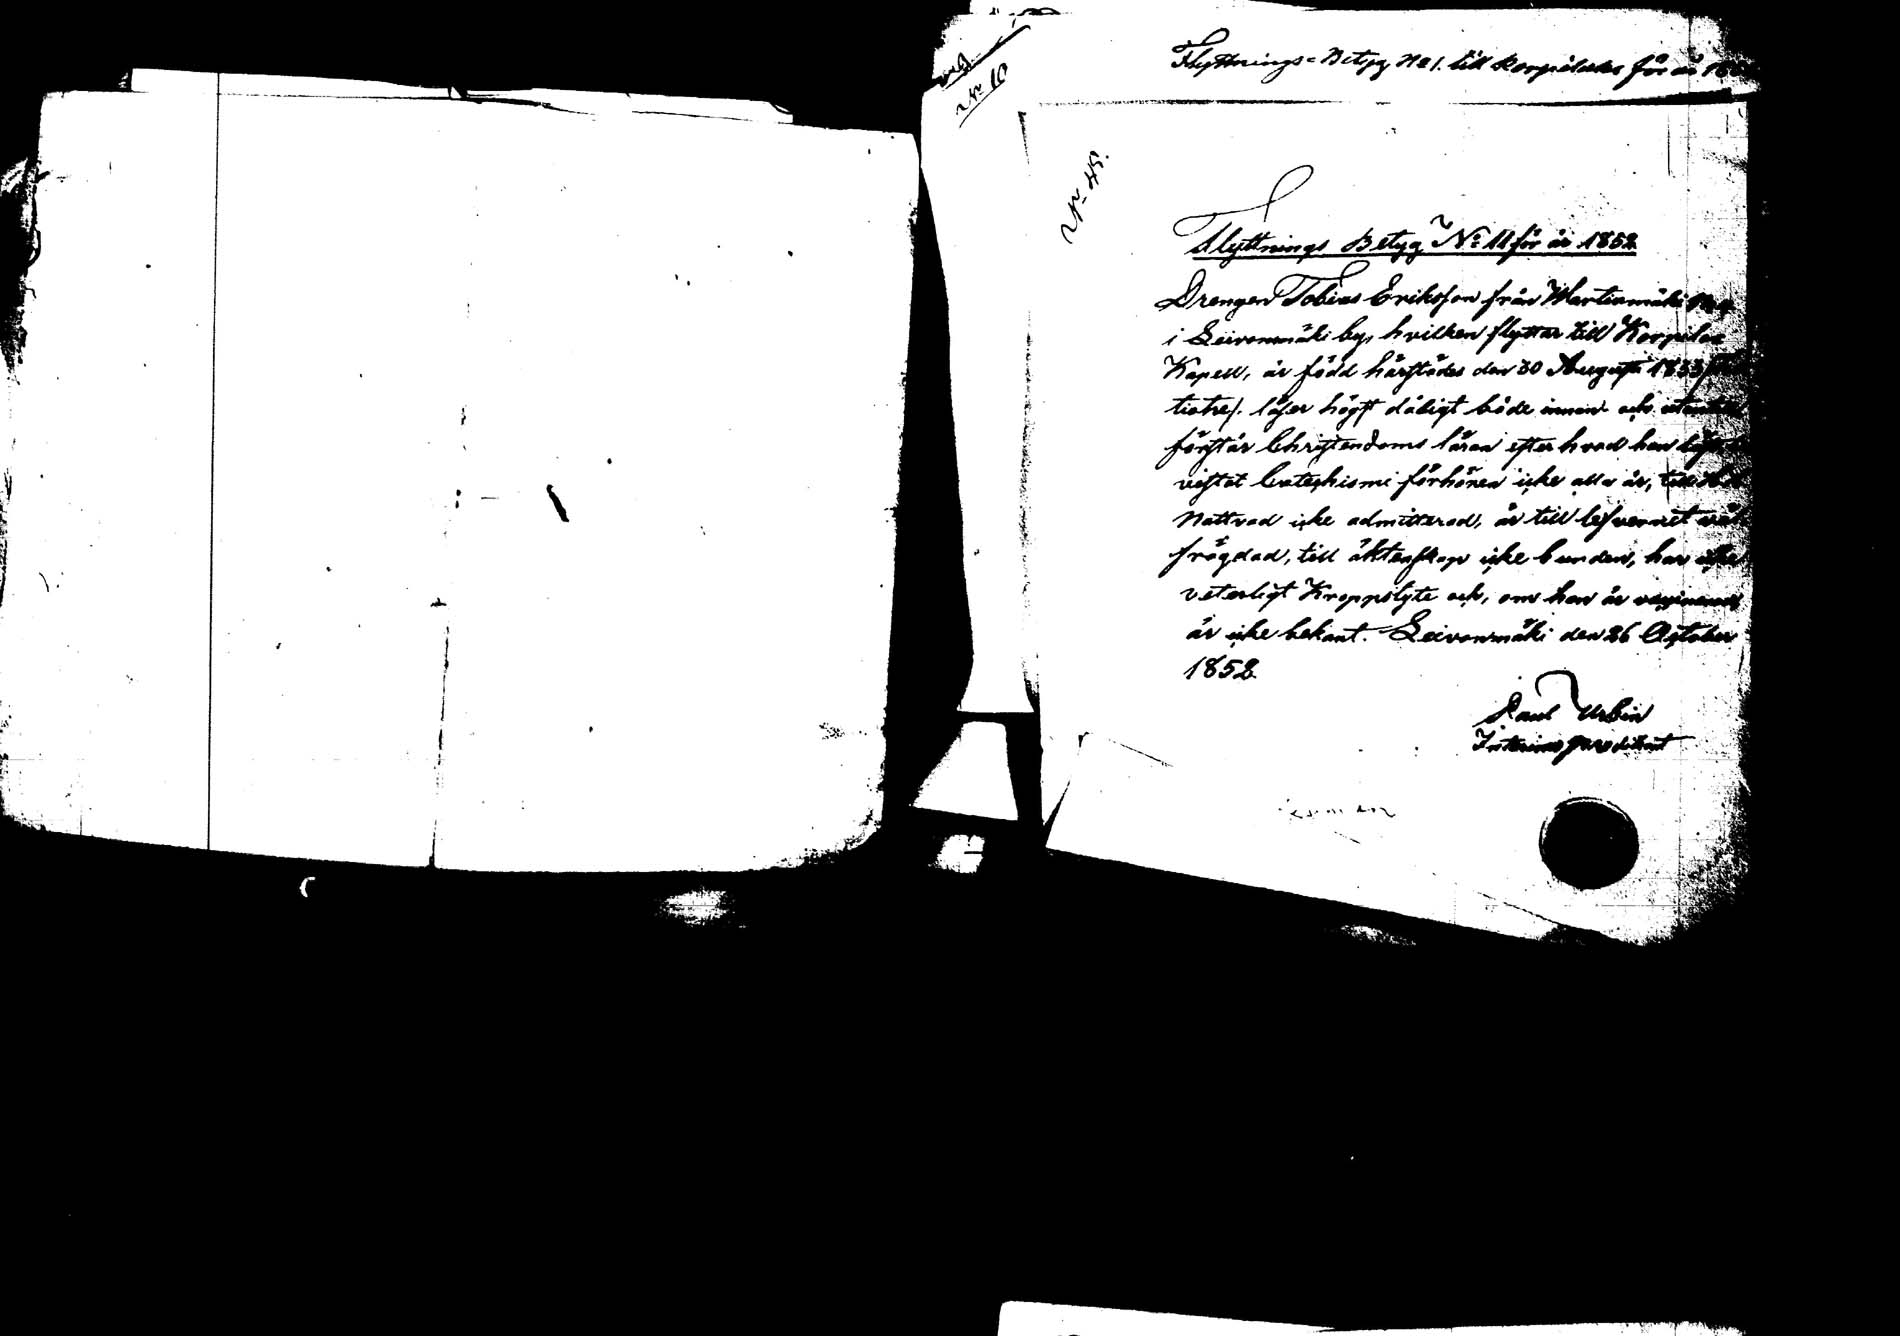 Flyttnings-Betyg No 1. till Korpilaks för år
No 10
No 45.
Flyttnings Betyg No 11 för år 1852
Drengen Tobias Eriksson från Martinmäki
i Leivonmäki by, hvilken flyttar till Korpilax
Kapell, är född härstädes den 30 Augusti 1833
läser högst dåligt både innan och utantill
förstår Christendoms läran efter hvad han
vistat Catechismi förhören icke alla år, till
Nattvard icke admitterad, är till lefvernet
frägdad, till äktenskap icke bunden, har icke
veterligt Kroppslyte och, om han är vaccinerad
är icke bekant. Leivonmäki den 26 October
1852
Paul Urbin